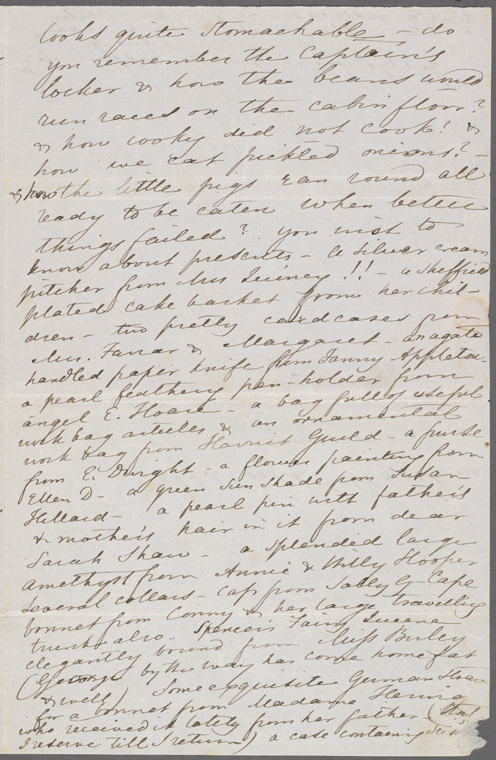 looks quite stomachable - do
you remember the Captain's
locker & how the beans would
run races on the cabin floor?
& how cooky did not cook? &
how we eat pickled onions? -
& how the little pigs ran round all
ready to be eaten when better
things failed? you wish to
know about presents - a silver cream
pitcher from Mrs Quincy!! - a sheffield
plated cake basket from her chil-
dren - two pretty cardcases from
Mrs. Farrar & Margaret - an agate
handled paper knife from Fanny Appleton
a pearl feathery pen-holder from
angel E. Hoare - a bag full of useful
work bag articles & an ornamental
work bag from Harriet Guild - a purse
from E. Dwight - a flower painting from
Ellen D - a green sun shade from Susan
Hillard - a pearl pin with father's
& mother's hair in it from dear
Sarah Shaw - a splendid large
amethyst from Annie & Willy Hooper
several collars - caps from Sally G - Cape
bonnet from Conny & her large travelling
trunk also - Spencer's Fairy Queene
elegantly bound from Miss Burley
(George by the way has come home fat
& well) some exquisite German
for a bonnet from Madame
who received it lately from her father
I reserve till I return) a case containing